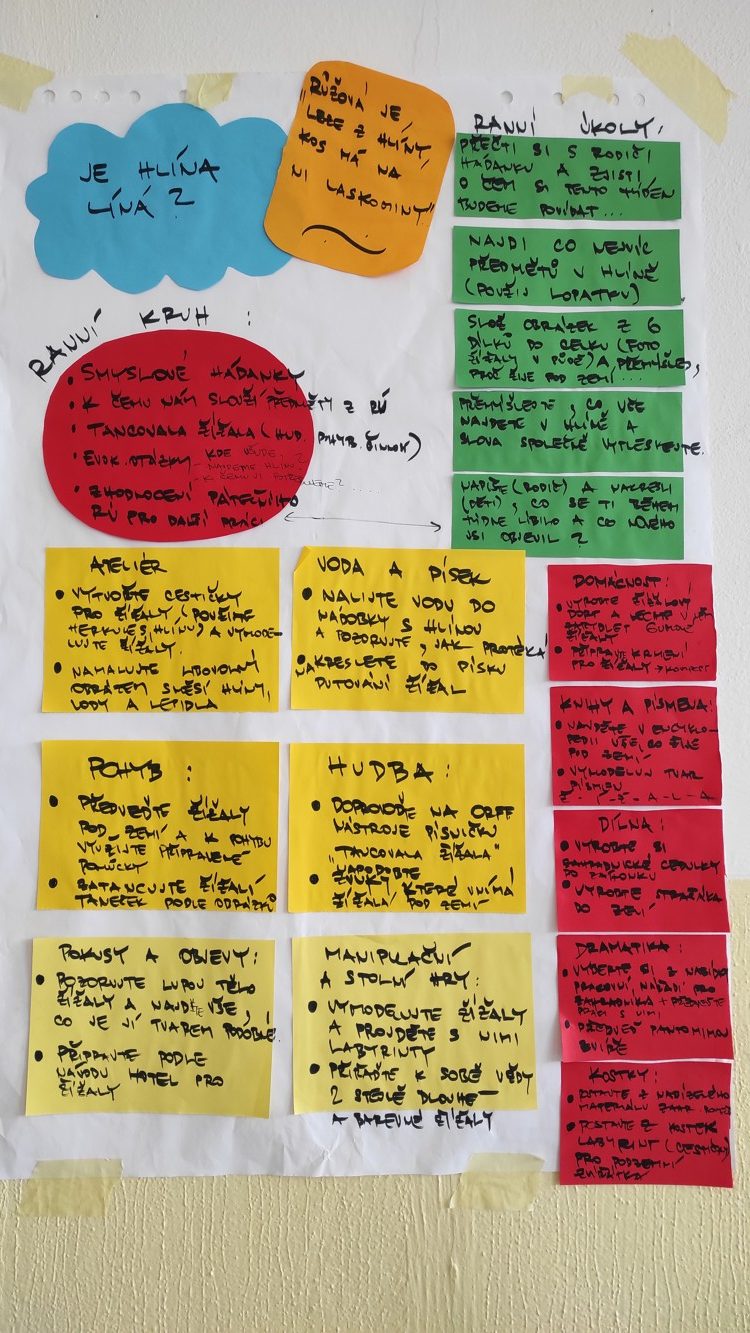 JE HLÍNA
LÍNÁ?
„RŮŽOVÁ JE,
LEZE Z HLÍNY,
KOS MÁ NA
NI LASKOMINY."
RANNÍ ÚKOLY:
PŘEČTI SI S RODIČI
HÁDANKU A ZJISTI
O ČEM SI TENTO TÝDEN
BUDEME POVÍDAT...
NAJDI CO NEJVÍC
PŘEDMĚTŮ V HLÍNĚ
(POUŽIJ LOPATKU)
SLOŽ OBRÁZEK Z 6
DÍLKŮ DO CELKU (FOTO
ŽÍŽALY V PŮDĚ) A PŘEMÝŠLEJ,
PROČ ŽIJE POD ZEMÍ...
PŘEMÝŠLEJTE, CO VŠE
NAJDETE V HLÍNĚ A
SLOVA SPOLEČNĚ VYTLESKEJTE.
NAPIŠ (RODIČ) A NAKRESLI
(DĚTI), CO SE TI BĚHEM
TÝDNE LÍBILO A CO NOVÉHO
JSI OBJEVIL?
RANNÍ KRUH:
• SMYSLOVÉ HÁDANKY
• K ČEMU NÁM SLOUŽÍ PŘEDMĚTY Z RÚ
• TANCOVALA ŽÍŽALA (HUD. POHYB. ČINNOST)
• EVOK. OTÁZKY - KDE VŠUDE
- NAJDEME HLÍNU?
- K ČEMU JI POTŘEBUJEME?.....
• ZHODNOCENÍ PÁTEČNÍHO
RÚ PRO DALŠÍ PRÁCI
ATELIÉR
• VYTVOŘTE CESTIČKY
PRO ŽÍŽALY (POUŽIJTE
HERKULES, HLÍNU) A VYMODE-
LUJTE ŽÍŽALY.
• NAMALUJTE LIBOVOLNÝ
OBRÁZEK SMĚSÍ HLÍNY,
VODY A LEPIDLA
VODA A PÍSEK
• NALIJTE VODU DO
NÁDOBKY S HLÍNOU
A POZORUJTE, JAK PROTÉKÁ
• NAKRESLETE DO PÍSKU
PUTOVÁNÍ ŽÍŽAL
POHYB:
• PŘEDVEĎTE ŽÍŽALY
POD ZEMÍ A K POHYBU
VYUŽIJTE PŘIPRAVENÉ
POMŮCKY
• ZATANCUJTE ŽÍŽALÍ
TANEČEK PODLE OBRÁZKŮ
HUDBA:
• DOPROVOĎTE NA ORFF
NÁSTROJE PÍSNIČKU
„TANCOVALA ŽÍŽALA"
• NAPODOBTE
ZVUKY, KTERÉ VNÍMÁ
ŽÍŽALA POD ZEMÍ
POKUSY A OBJEVY:
• POZORUJTE LUPOU TĚLO
ŽÍŽALY A NAJDĚTE VŠE,
CO JE JÍ TVAREM PODOBNÉ.
• PŘIPRAVTE PODLE
NÁVODU HOTEL PRO
ŽÍŽALY
MANIPULAČNÍ
A STOLNÍ HRY:
• VYMODELUJTE ŽÍŽALY
A PROJDĚTE S NIMI
LABYRINTY
• PŘIŘAĎTE K SOBĚ VŽDY
2 STEJNĚ DLOUHÉ
A BAREVNÉ ŽÍŽALY
DOMÁCNOST:
• VYROBTE ŽÍŽALOVÝ
DORT A NECHTE V NĚM
GUMOVÉ
ŽÍŽALY
• PŘIPRAVTE KRMENÍ
PRO ŽÍŽALY → KOMPOST
KNIHY A PÍSMENA:
• NAJDĚTE V ENCYKLO-
PEDII VŠE, CO ŽIJE
POD ZEMÍ
• VYMODELUJ TVAR
PÍSMEN
Ž-Í-Ž-A-L-A
DÍLNA:
• VYROBTE SI
ZAHRADNICKÉ CEDULKY
DO ZÁHONKU
• VYROBTE STRAŠÁKA
DO ZELÍ
DRAMATIKA:
• VYBERTE SI Z NABÍDKY
PRACOVNÍ NÁŘADÍ PRO
ZAHRADNÍKA + PŘEDVEĎTE
PRÁCI S NIMI
• PŘEDVEĎ PANTOMIMOU
ZVÍŘE
KOSTKY:
• POSTAVTE Z NABÍZENÉHO
MATERIÁLU ZAHR.
• POSTAVTE Z KOSTEK
LABYRINT (CESTIČKY)
PRO PODZEMNÍ
ZVÍŘÁTKA